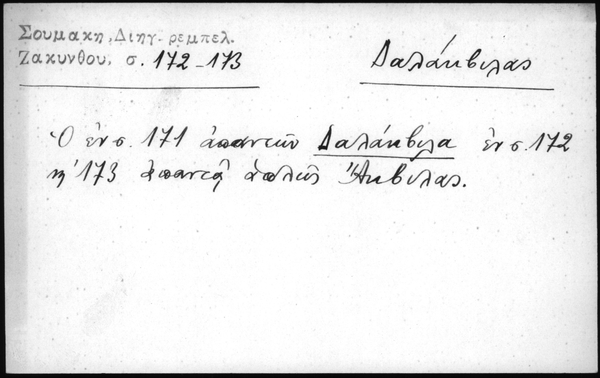 Σουμακη, Διηγ. ρεμπελ.
Ζακυνθου, σ. 172-173
Δαλάκβιλας
Ὁ ἐν σ. 171 ἀπαντῶν Δαλάκβιλα ἐν σ. 172
κ' 173 ἀπαντᾷ ἁπλῶς Ἄκβιλας.